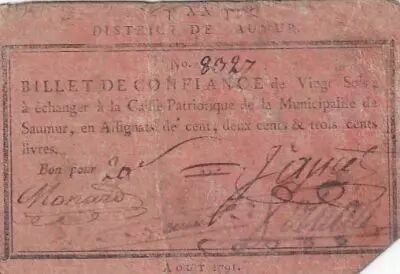 DISTRICT DE SAUMUR.
No. 8327
BILLET DE CONFIANCE de Vingt Sols,
à échanger à la Caisse Patriotique de la Municipalité de
Saumur, en Assignats de cent, deux cents & trois cents
livres.
Bon pour 20ˢ
Monard
AOUT 1791.